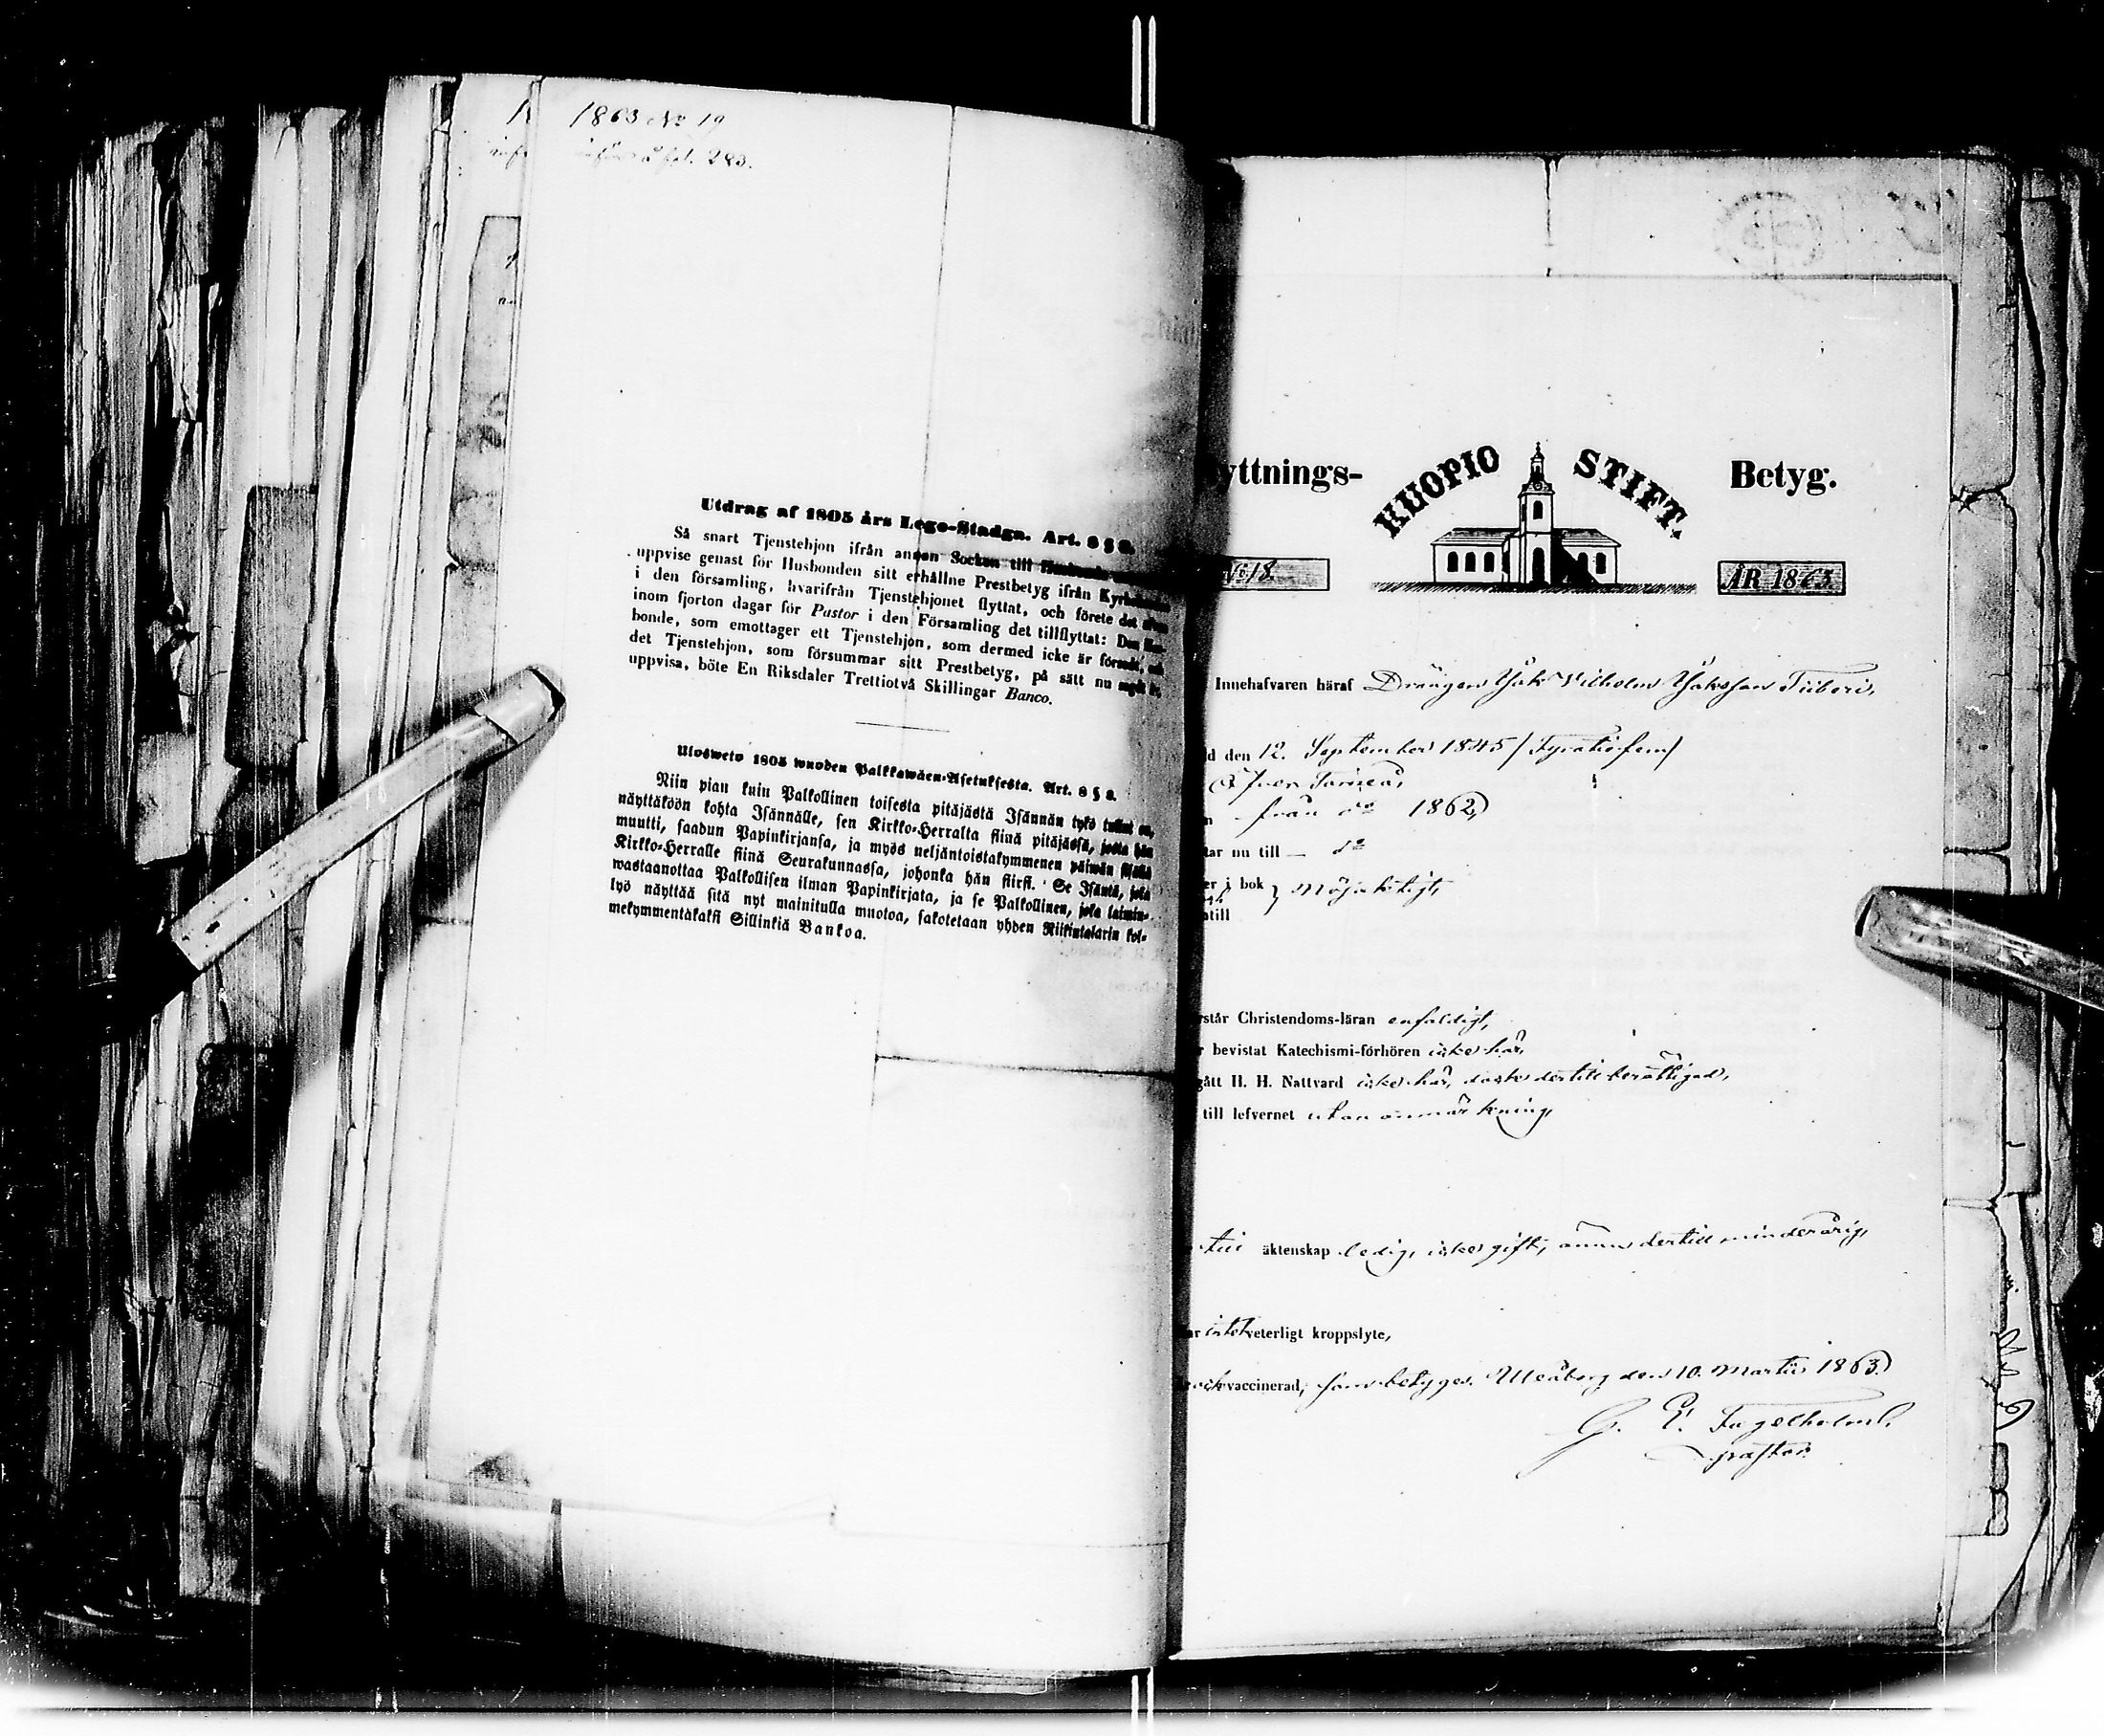 1863 No 19
införd å fol. 283.
Utdrag af 1805 års Lego-Stadga. Art. 8 § 8.
Så snart Tjenstehjon ifrån annan Socken till
uppvise genast för Husbonden sitt erhållne Prestbetyg ifrån
i den församling, hvarifrån Tjenstehjonet flyttat, och förete det
inom fjorton dagar för Pastor i den Församling det tillflyttat: Den Hus-
bonde, som emottager ett Tjenstehjon, som dermed icke är försedt, och
det Tjenstehjon, som försummar sitt Prestbetyg, på sätt nu sagdt är,
uppvisa, böte En Riksdaler Trettiotvå Skillingar Banco.
Ulosweto 1805 wuoden Palkkawäen-Asetuksesta. Art. 8 § 8.
Niin pian kuin Palkollinen toisesta pitäjästä Isännän tykö tullut on,
näyttäköön kohta Isännälle, sen Kirkko-Herralta siinä pitäjässä, josta hän
muutti, saadun Papinkirjansa, ja myös neljäntoistakymmenen päiwän sisällä
Kirkko-Herralle siinä Seurakunnassa, johonka hän siirsi. Se Isäntä, joka
wastaanottaa Palkollisen ilman Papinkirjata, ja se Palkollinen, joka laimin-
lyö näyttää sitä nyt mainitulla muotoa, sakotetaan yhden Riikintalarin kol-
mekymmentäkaksi Sillinkiä Bankoa.
yttnings- KUOPIO STIFT. Betyg.
No 18. ÅR 1863.
Innehafvaren häraf Drängen Isak Wilhelm Isaksson Tiiberi,
d den 12. September 1845 / Fyratiofem /
Öfver Torneå,
n från do 1862,
tar nu till — do
er i bok } Möjeligt,
till
rstår Christendoms-läran enfaldigt,
r bevistat Katechismi-förhören icke här,
gått H. H. Nattvard icke här, dock dertill berättigad,
till lefvernet utan anmärkning,
till äktenskap ledig, icke gift, ännu dertill minderårig,
ar intet veterligt kroppslyte,
ock vaccinerad, som betygas. Uleåborg den 10. Martii 1863.
G. E. Fagelholm,
pastor.